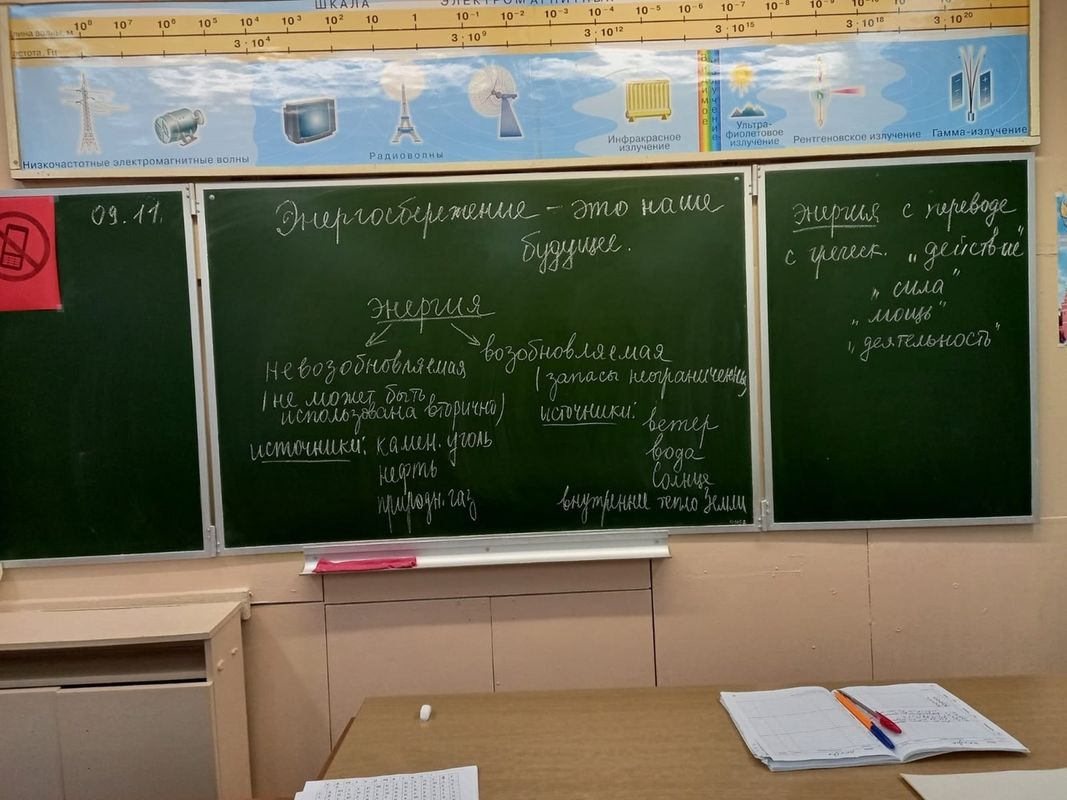 ШКАЛА ЭЛЕКТРОМАГНИТНЫХ
длина волны, м 10⁷ 10⁶ 10⁵ 10⁴ 10³ 10² 10 1 10⁻¹ 10⁻² 10⁻³ 10⁻⁴ 10⁻⁵ 10⁻⁶ 10⁻⁷ 10⁻⁸
частота, Гц 3·10⁴ 3·10⁹ 3·10¹² 3·10¹⁵ 3·10¹⁸ 3·10²⁰
Низкочастотные электромагнитные волны
Радиоволны
Инфракрасное
излучение
Видимое излучение
Ультра-
фиолетовое
излучение
Рентгеновское излучение
Гамма-излучение
09.11.
Энергосбережение – это наше
будущее.
энергия
невозобновляемая
(не может быть
использована вторично)
источники: камен. уголь
нефть
природн. газ
возобновляемая
(запасы неограничены
источники:
ветер
вода
Солнце
внутреннее тепло Земли
Энергия с переводе
с греческ. „действие"
„сила"
„мощь"
„деятельность"